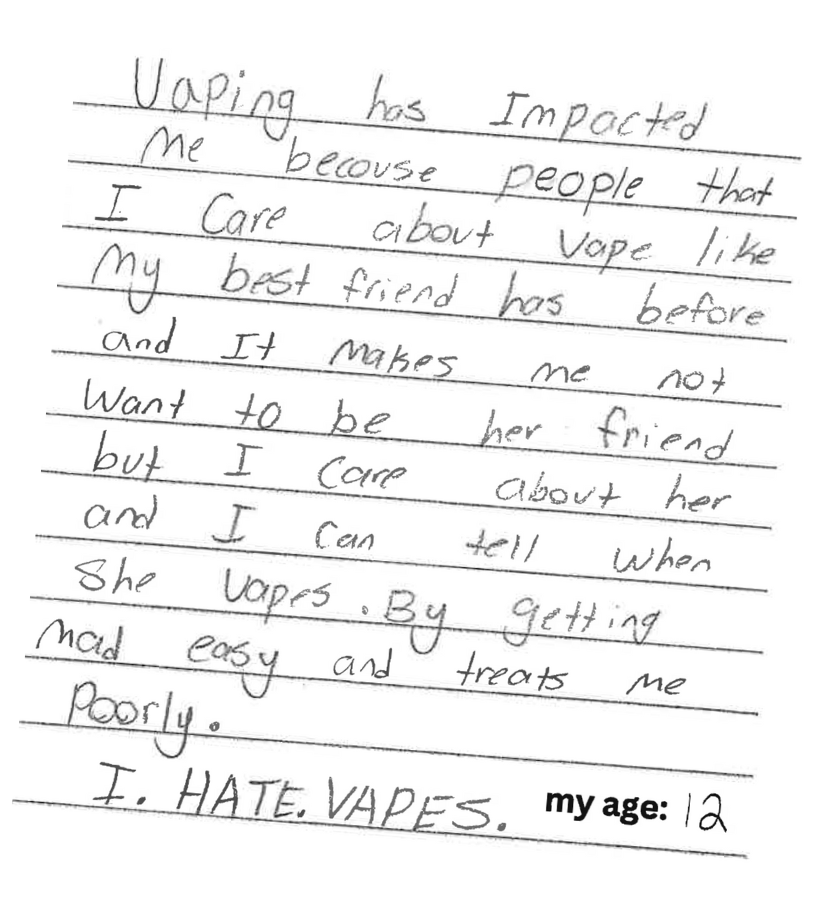 Vaping has Impacted
Me becouse people that
I Care about Vape like
My best friend has before
and It Makes me not
Want to be her friend
but I Care about her
and I Can tell when
She Vapes. By getting
Mad easy and treats me
Poorly.
I. HATE. VAPES. my age: 12